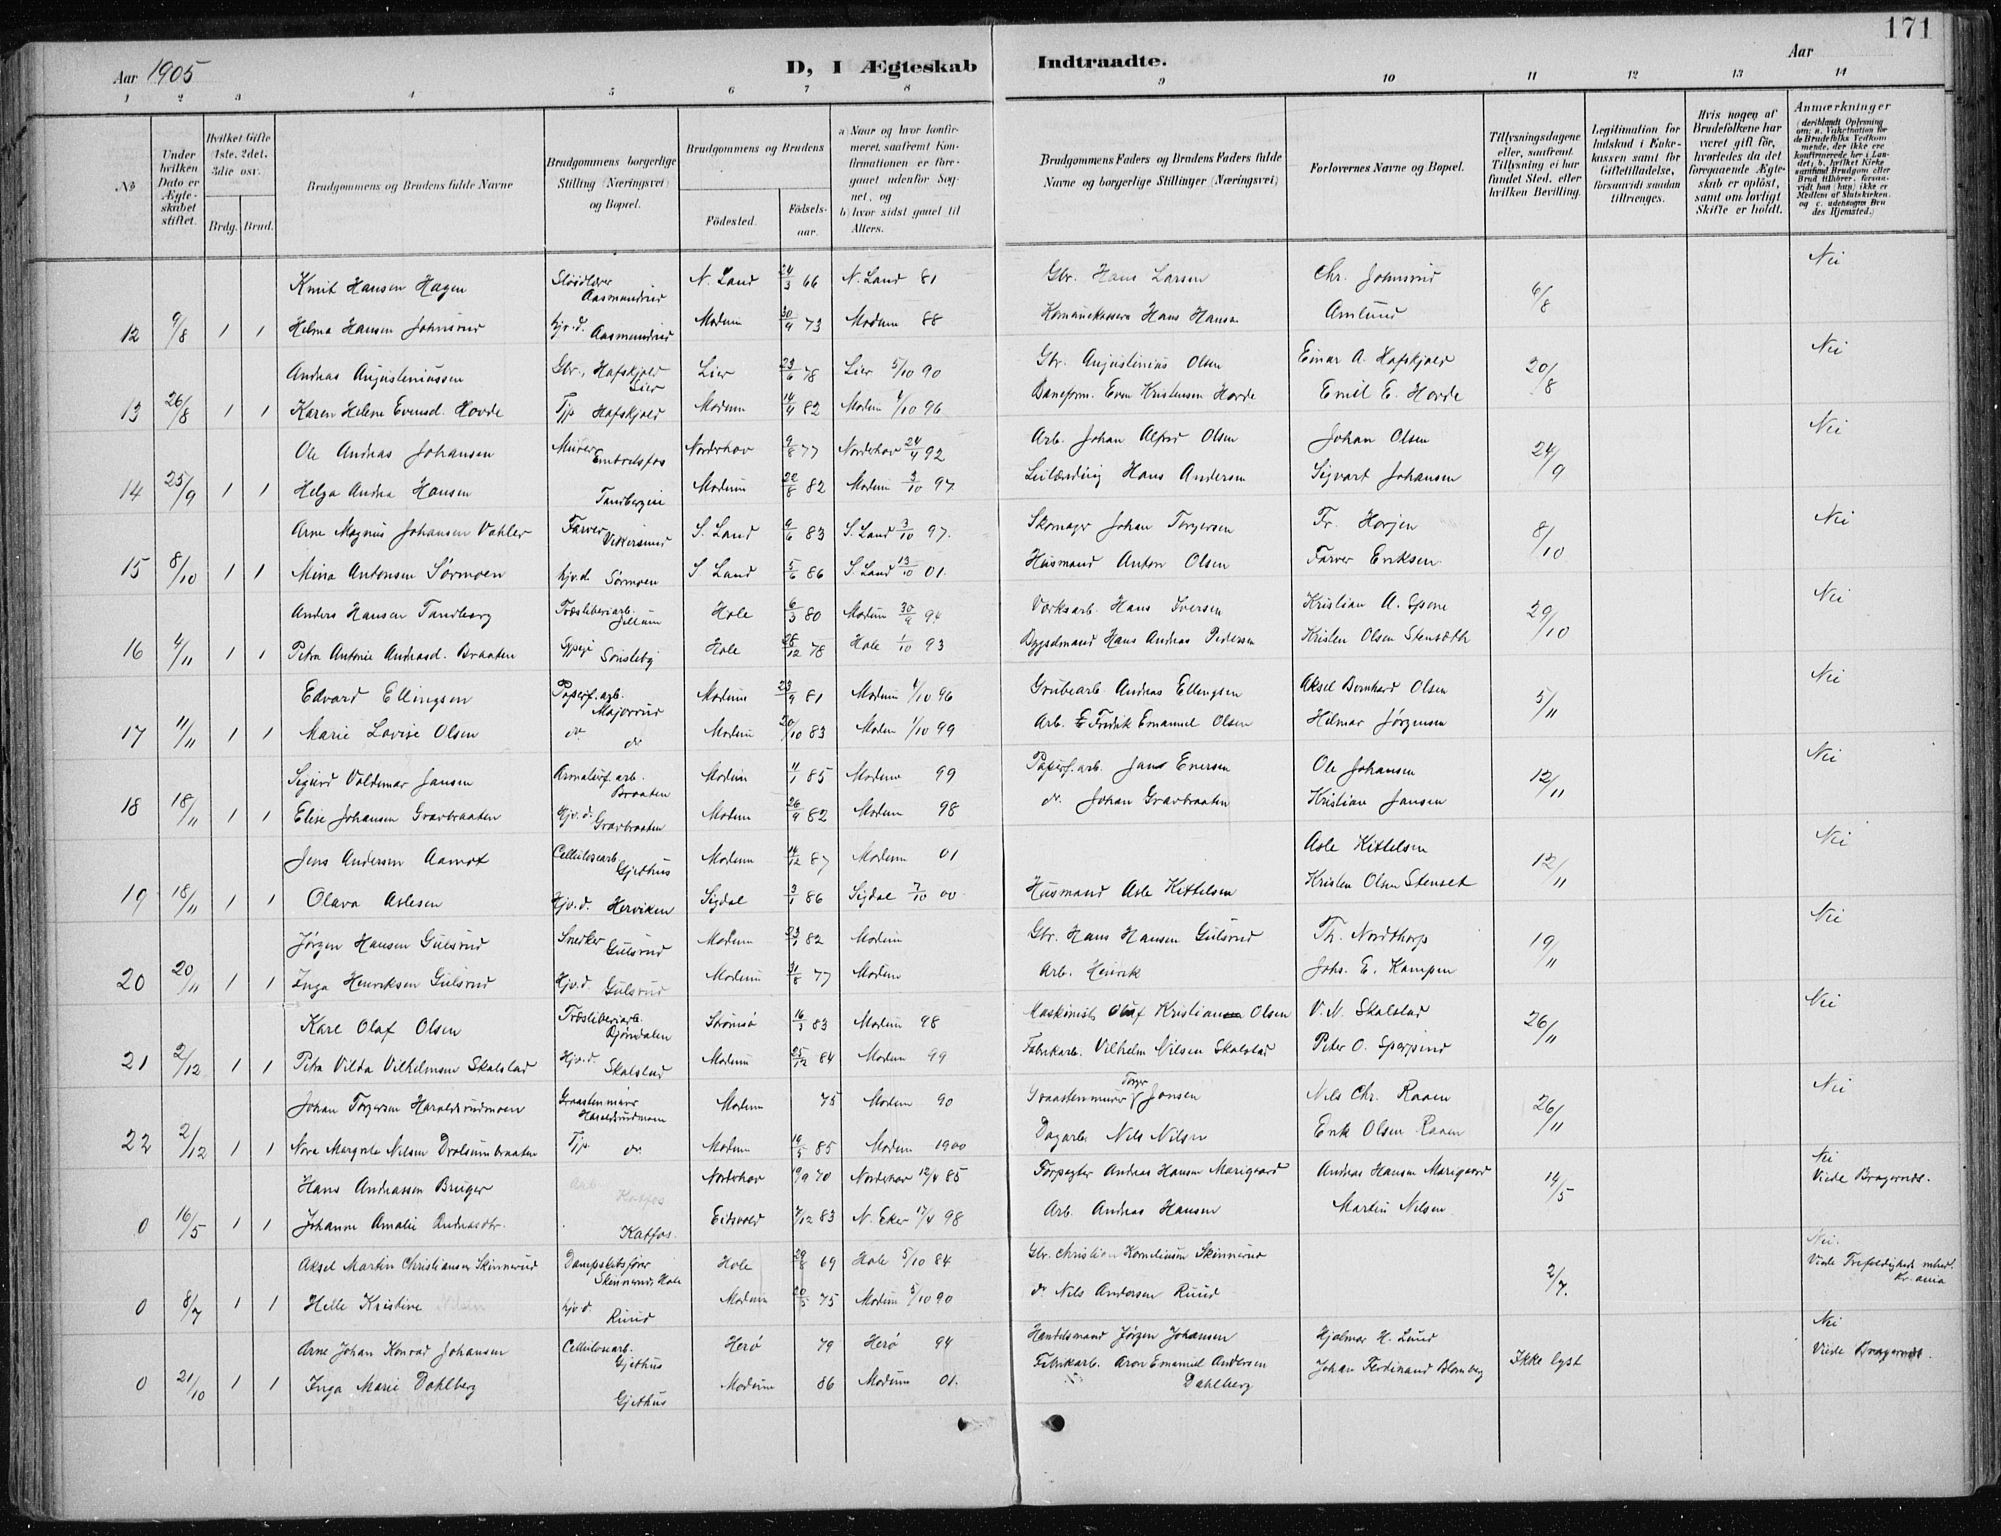 171
Aar 1905
D, I Ægteskab Indtraadte.
Aar
1 2 3 4 5 6 7 8 9 10 11 12 13 14
No
Under hvilken Dato er Ægteskabet stiftet.
Hvilket Gifte (1ste, 2det, 3die osv.
Brdg. Brud.
Brudgommens og Brudens fulde Navne
Brudgommens borgerlige Stilling (Næringsvei) og Bopæl.
Brudgommens og Brudens
Födested. Födselsaar.
a) Naar og hvor konfirmeret, saafremt Konfirmationen er foregaaet udenfor Sognet, og
b) hvor sidst gaaet til Alters.
Brudgommens Faders og Brudens Faders fulde Navne og borgerlige Stillinger (Næringsvei)
Forlovernes Navne og Bopæl.
Tillysningsdagene eller, saafremt Tillysning ei har fundet Sted, efter hvilken Bevilling.
Legitimation for Indskud i Enkekassen samt for Giftetilladelse, forsaavidt saadan tiltrænges.
Hvis nogen af Brudefolkene har været gift för, hvorledes da det foregaaende Ægteskab er oplöst, samt om lovligt Skifte er holdt.
Anmærkninger
Knut Hansen Hagen Aasmundrud N. Land 24/3 66 N. Land 81 Gbr. Hans Larsen Chr. Johnsrud 6/8 Nei
12 9/8 1 1 Helma Hansen Johnsrud hjv.d. Aasmundrud Modum 30/9 73 Modum 88 Hans Hansen Amlund
Andreas Augustiniussen Gbr. Hafskjold Lier Lier 23/6 78 Lier 5/10 90 Gbr. Augustinius Olsen Einar A. Hafskjold 20/8 Nei
13 26/8 1 1 Karen Helene Evensd. Hovde Tjp Hafskjold Modum 14/4 82 Modum 4/10 96 Baneform. Even Kristensen Hovde Emil E. Hovde
Ole Andreas Johansen Murer Embretsfos Norderhov 9/8 77 Norderhov 24/4 92 Arb. Johan Alfred Olsen Johan Olsen 24/9 Nei
14 25/9 1 1 Helga Andrea Hansen Tandbergeie Modum 22/8 82 Modum 3/10 97 Leilænding Hans Andersen Sigvart Johansen
Arne Magnus Johansen Vahler Farver Vikersund S. Land 9/6 83 S. Land 3/10 97. Skomager Johan Torgersen Fr. Horjen 8/10 Nei
15 8/10 1 1 Mina Antonsen Sörmoen hjv.d. Sörmoen S. Land 5/6 86 S. Land 13/10 01. Husmand Anton Olsen Farver Eriksen
Anders Hansen Tandberg Træsliberiarb. Hole 6/3 80 Modum 30/9 94 Værksarb. Hans Iversen Kristian A. Spone 29/10 Nei
16 4/11 1 1 Petra Antonie Andreasd. Braaten Sypige Sönsteby Hole 28/12 78 Hole 1/10 93 Bygselmand Hans Andreas Pedersen Kristen Olsen Stensæth
Edvard Ellingsen Papirf.arb. Majorrud Modum 23/9 81 Modum 4/10 96 Grubearb. Andreas Ellingsen Aksel Bernhard Olsen 5/11 Nei
17 11/11 1 1 Marie Lovise Olsen do do Modum 20/10 83 Modum 1/10 99 Arb. Fredrik Emanuel Olsen Helmar Jörgensen
Sigurd Valdemar Jansen Braaten Modum 11/1 85 Modum 99 Papirf.arb. Enersen Ole Johansen 12/11 Nei
18 18/11 1 1 Elise Johansen Gravbraaten Hjv.d. Gravbraaten Modum 26/9 82 Modum 98 do. Johan Gravbraaten Kristian Jansen
Jens Andersen Aamot Cellulosearb. Gjethus Modum 14/12 87 Modum 01 Asle Kittelsen 12/11 Nei
19 18/11 1 1 Olava Aslesen Hjv.d. Herviken Sigdal 3/1 86 Sigdal 7/10 00 Husmand Asle Kittelsen Kristen Olsen Stenset
Jörgen Hansen Gulsrud Snedker Gulsrud Modum 23/1 82 Modum Gbr. Hans Hansen Gulsrud Th. Nordthorp 19/11 Nei
20 20/11 1 1 Inga Henriksen Gulsrud Hjv.d. Gulsrud Modum 31/8 77 Modum Arb. Henrik Johs. E. Kampen
Kare Olaf Olsen Træsliberiarb. Gjöndalen Strömsö 16/3 83 Modum 98 Maskinist Olaf Kristian Olsen V. N. Skalstad 26/11 Nei
21 2/12 1 1 Petra Vilda Vilhelmsen Skalstad Hjv.d. Skalstad Modum 25/12 84 Modum 99 Fabrikarb. Vilhelm Nilsen Skalstad Peter O.
Johan Torgersen Haraldsrudmoen Graastensmurer Haraldsrudmoen Modum 75 Modum 90 Graastensmurer Torger Jonsen Nils Chr. Raaen 26/11 Nei
22 2/12 1 1 Nora Margrete Nilsen Drolsumbraaten Tjp. do. Modum 19/5 85 Modum 1900 Dagarb. Nils Nilsen Erik Olsen Raaen
Hans Andreassen Bruger Arb. Katfos Norderhov 19/9 70 Norderhov 12/4 85 Forpagter Andreas Hansen Marigaard Andreas Hansen Marigaard 14/5 Nei Viede Bragernes.
0 16/5 1 1 Johanne Amalie Andreasdtr. Katfos. Eidsvold 7/12 83 N. Eker 17/4 98 Arb. Andreas Hansen Martin Nilsen
Aksel Martin Christiansen Skinnerud Dampskibsförer Skinnerud Hole Hole 29/8 69 Hole 5/10 84 Gbr. Christian Kornelius Skinnerud 2/7. Nei. Viede Trefoldighed Kr.ania
0 8/7 1 1 Helle Kristine Nilsen hjv.d. Ruud Modum 20/5 75 Modum 5/10 90 do Nils Andersen Ruud
Arne Johan Konrad Johansen Cellulosearb. Gjethus Herö 79 Herö 94 Handelsmand Jörgen Johansen Hjalmar H. Lund Ikke lyst Nei Viede Bragernes.
0 21/10 1 1 Inga Marie Dahlberg Gjethus Modum 86 Modum 01. Fabrikarb. Aron Emanuel Andersen Dahlberg Johan Ferdinand Blomberg